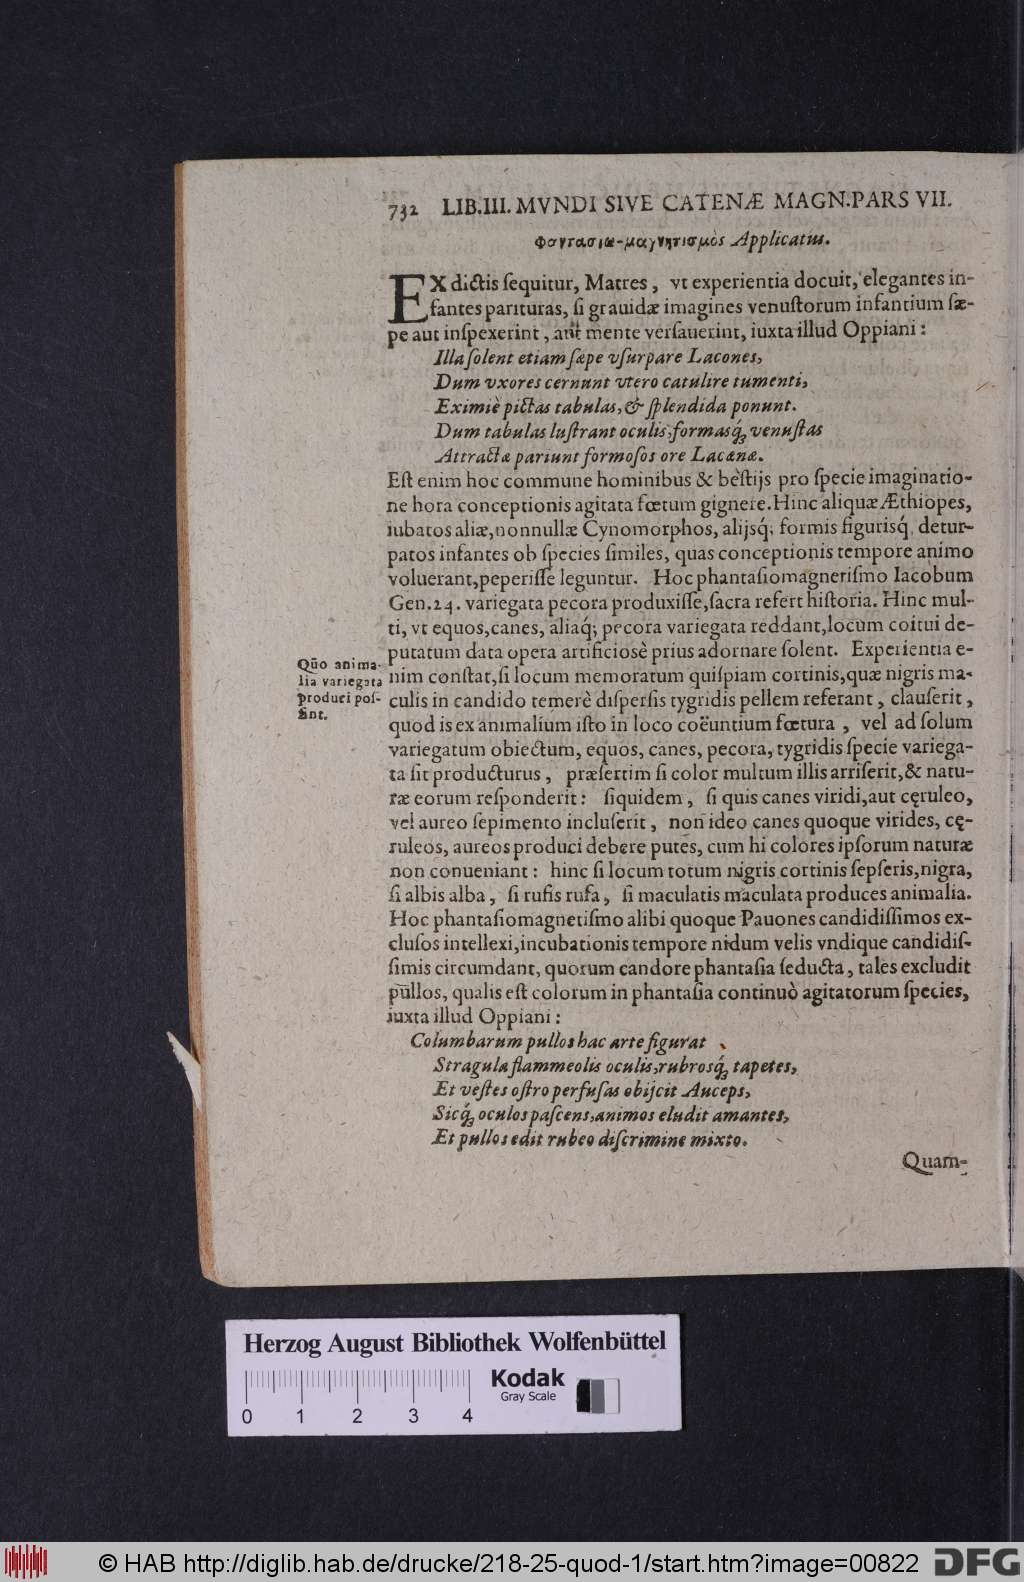 732 LIB.III. MVNDI SIVE CATENÆ MAGN. PARS VII.
Φαντασια-μαγνητισμὸς Applicatus.
EX dictis ſequitur, Matres, vt experientia docuit, elegantes in-
fantes parituras, ſi grauidæ imagines venuſtorum infantium ſæ-
pe aut inſpexerint, aut mente verſauerint, iuxta illud Oppiani:
Illa ſolent etiam ſæpe vſurpare Lacones,
Dum vxores cernunt vtero catulire tumenti,
Eximiè pictas tabulas, & ſplendida ponunt.
Dum tabulas luſtrant oculis, formasq́; venuſtas
Attractæ pariunt formoſos ore Lacænæ.
Eſt enim hoc commune hominibus & beſtijs pro ſpecie imaginatio-
ne hora conceptionis agitata fœtum gignere. Hinc aliquæ Æthiopes,
iubatos aliæ, nonnullæ Cynomorphos, alijsq́; formis figurisq́, detur-
patos infantes ob ſpecies ſimiles, quas conceptionis tempore animo
voluerant, peperiſſe leguntur. Hoc phantaſiomagnetiſmo Iacobum
Gen. 24. variegata pecora produxiſſe, ſacra refert hiſtoria. Hinc mul-
ti, vt equos, canes, aliaq́; pecora variegata reddant, locum coitui de-
putatum data opera artificiosè prius adornare ſolent. Experientia e-
Quō anima-
lia variegata
produci poſ-
ſint.
nim conſtat, ſi locum memoratum quiſpiam cortinis, quæ nigris ma-
culis in candido temerè diſperſis tygridis pellem referant, clauſerit,
quod is ex animalium iſto in loco coëuntium fœtura, vel ad ſolum
variegatum obiectum, equos, canes, pecora, tygridis ſpecie variega-
ta ſit producturus, præſertim ſi color multum illis arriſerit, & natu-
ræ eorum reſponderit: ſiquidem, ſi quis canes viridi, aut cęruleo,
vel aureo ſepimento incluſerit, non ideo canes quoque virides, cę-
ruleos, aureos produci debere putes, cum hi colores ipſorum naturæ
non conueniant: hinc ſi locum totum nigris cortinis ſepſeris, nigra,
ſi albis alba, ſi rufis rufa, ſi maculatis maculata produces animalia.
Hoc phantaſiomagnetiſmo alibi quoque Pauones candidiſſimos ex-
cluſos intellexi, incubationis tempore nidum velis vndique candidiſ-
ſimis circumdant, quorum candore phantaſia ſeducta, tales excludit
pullos, qualis eſt colorum in phantaſia continuò agitatorum ſpecies,
iuxta illud Oppiani:
Columbarum pullos hac arte figurat
Stragula flammeolis oculis, rubrosq́; tapetes,
Et veſtes oſtro perfuſas obijcit Auceps,
Sicq́; oculos paſcens, animos eludit amantes,
Et pullos edit rubeo diſcrimine mixto.
Quam-
Herzog August Bibliothek Wolfenbüttel
Kodak
Gray Scale
0 1 2 3 4
© HAB http://diglib.hab.de/drucke/218-25-quod-1/start.htm?image=00822
DFG